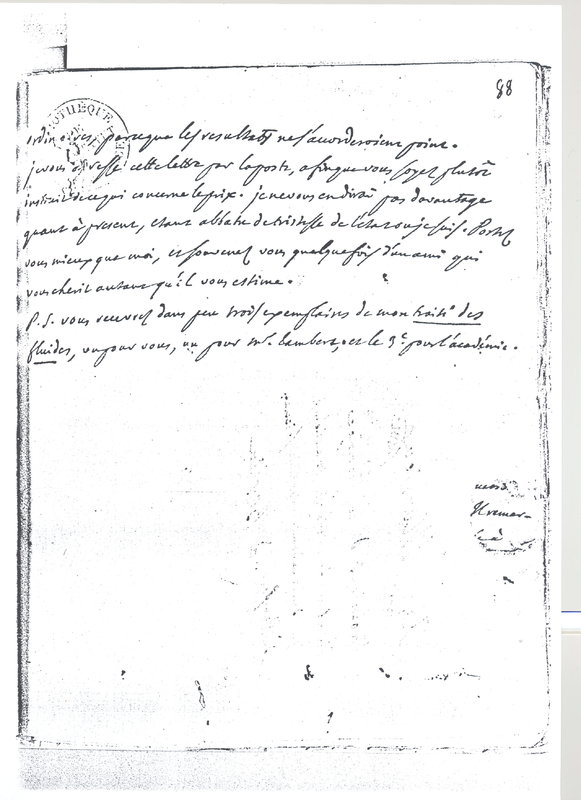 88
ordinaires, parceque les resultats ne s'accorderoient point.
je vous adresse cette lettre par la poste, afin que vous soyez plutôt
instruit de ce qui concerne le prix. je ne vous en dirai pas davantage
quant à present, etant abbatu de tristesse de l'état où je suis. Portez
vous mieux que moi, et souvenez vous quelquefois d'un ami qui
vous cherit autant qu'il vous estime.
P.S. vous recevrez dans peu trois exemplaires de mon traité des
fluides, un pour vous, un pour Mr. lambert, et le 3e pour l'académie.